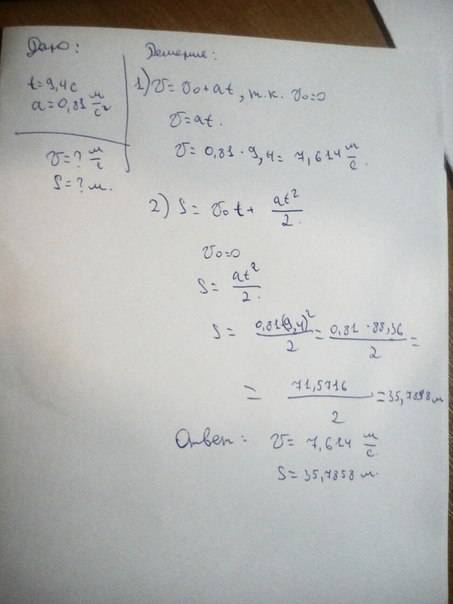 Дано:
t=9,4с
a=0,81 м/с²
v=? м/с
S=? м.
Решение:
1) v=v₀+at, т.к. v₀=0
v=at.
v=0,81·9,4=7,614 м/с.
2) S=v₀t+ at²/2.
v₀=0
S= at²/2.
S= 0,81(9,4)²/2 = 0,81·88,36/2 =
= 71,5716/2 =35,7858м
Ответ: v=7,614 м/с
S=35,7858 м.